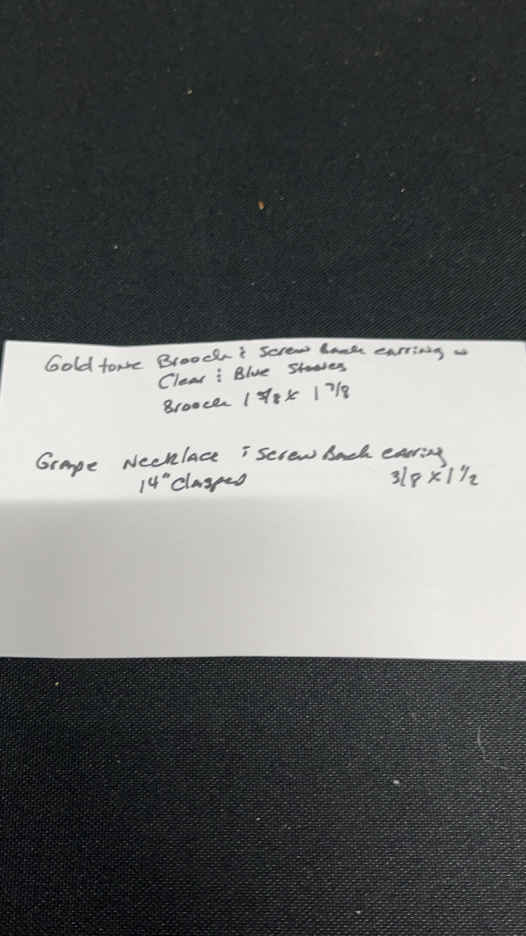 Gold tone Brooch & Screw back earring w
Clear & Blue Stones
Brooch 1 5/8 x 1 7/8
Grape Necklace & Screw Back earring
14" clasped 3/8 x 1 1/2